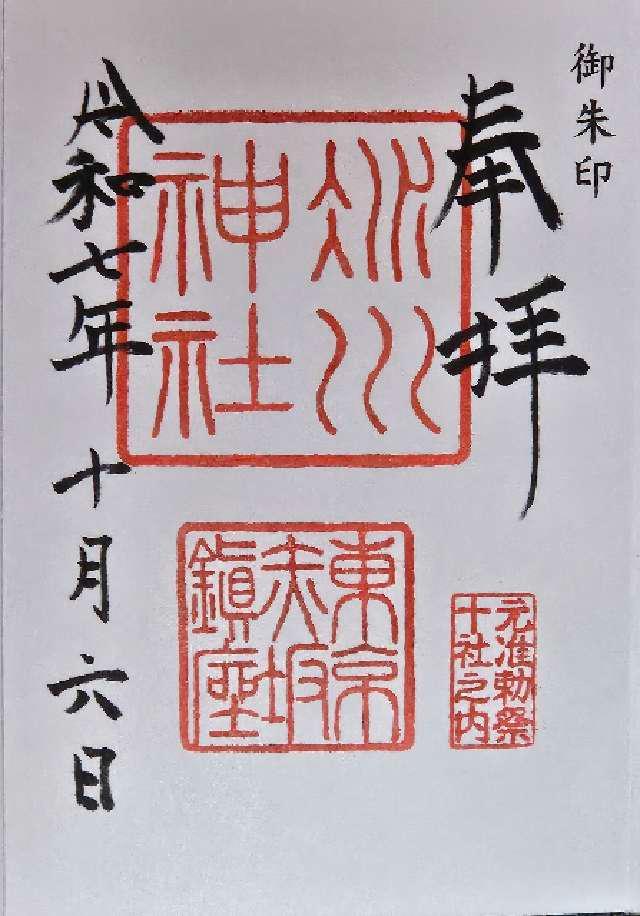 御朱印
奉拝
氷川
神社
東京
赤坂
鎮座
元准勅祭
十社之内
令和七年十月六日